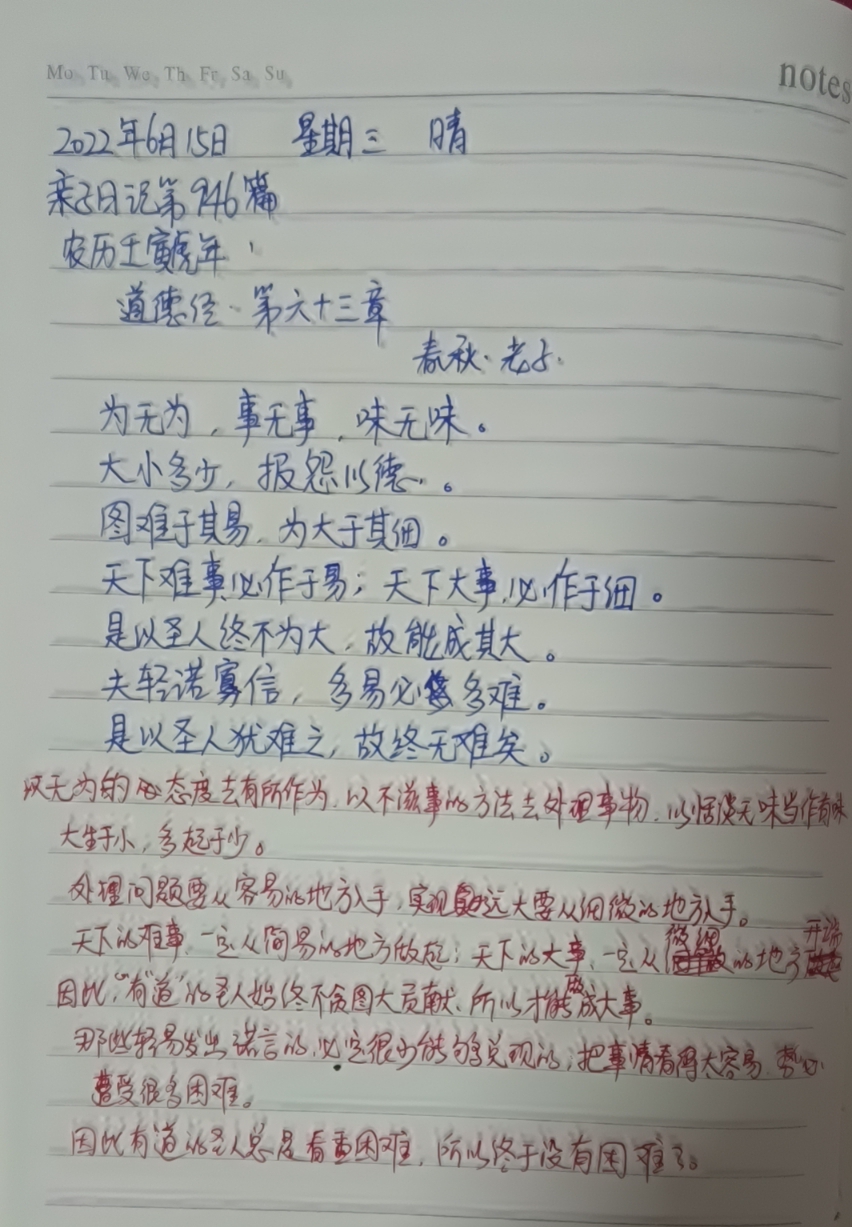 Mo Tu We Th Fr Sa Su
notes
2022年6月15日 星期三 晴
亲子日记第946篇
农历壬寅虎年
道德经·第六十三章
春秋·老子.
为无为，事无事，味无味。
大小多少，报怨以德。
图难于其易，为大于其细。
天下难事必作于易；天下大事，必作于细。
是以圣人终不为大，故能成其大。
夫轻诺寡信，多易必多难。
是以圣人犹难之，故终无难矣。
以无为的态度去有所作为，以不滋事的方法去处理事物，以恬淡无味当作有味
大生于小，多起于少。
处理问题要从容易的地方入手，实现远大要从细微的地方入手。
天下的难事，一定从简易的地方做起；天下的大事，一定从微细的地方开端
因此，“有道”的圣人始终不贪图大贡献，所以才能做成大事。
那些轻易发出诺言的，必定很少能够兑现的；把事情看得太容易，势必
遭受很多困难。
因此有道的圣人总是看重困难，所以终于没有困难了。